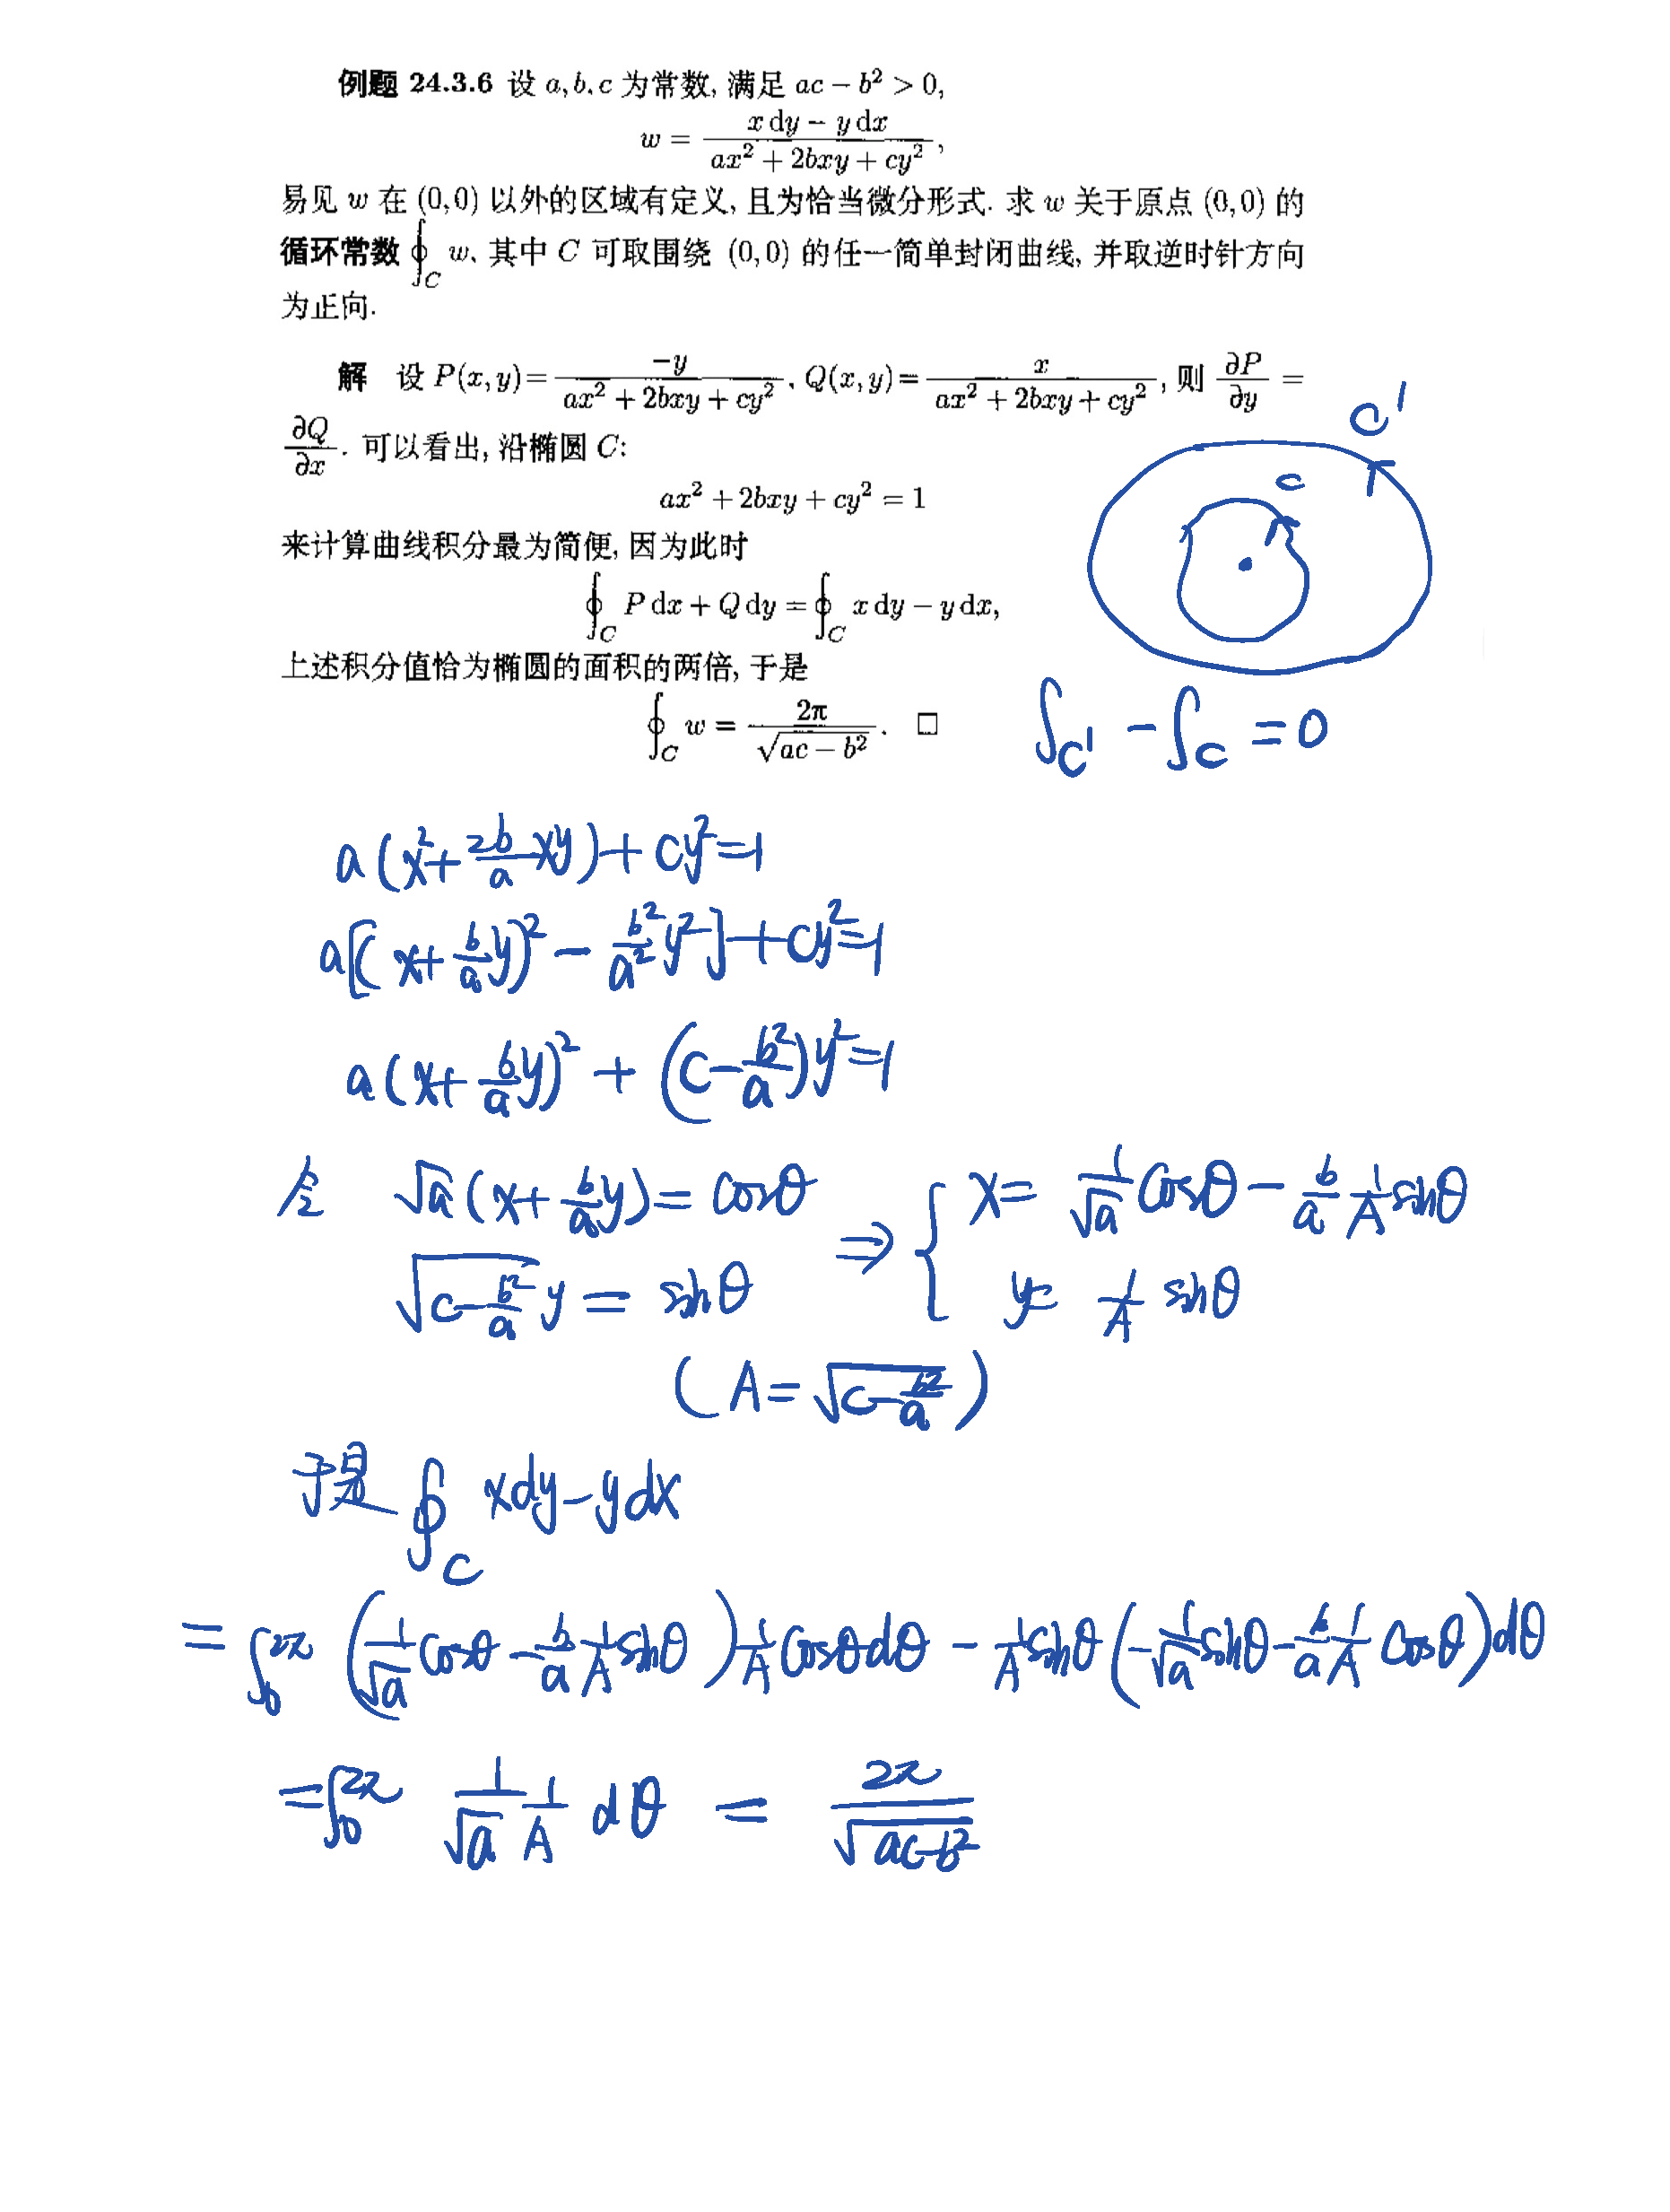 例题 24.3.6 设 a,b,c 为常数, 满足 ac − b² > 0,
w = (x dy − y dx)/(ax² + 2bxy + cy²),
易见 w 在 (0,0) 以外的区域有定义, 且为恰当微分形式. 求 w 关于原点 (0,0) 的
循环常数 ∮_C w, 其中 C 可取围绕 (0,0) 的任一简单封闭曲线, 并取逆时针方向
为正向.
解 设 P(x,y) = −y/(ax² + 2bxy + cy²), Q(x,y) = x/(ax² + 2bxy + cy²), 则 ∂P/∂y =
∂Q/∂x. 可以看出, 沿椭圆 C:
ax² + 2bxy + cy² = 1
来计算曲线积分最为简便, 因为此时
∮_C P dx + Q dy = ∮_C x dy − y dx,
上述积分值恰为椭圆的面积的两倍, 于是
∮_C w = 2π/√(ac − b²). □
C'
C
∫_C' − ∫_C = 0
a(x² + (2b/a)xy) + cy² = 1
a[(x + (b/a)y)² − (b²/a²)y²] + cy² = 1
a(x + (b/a)y)² + (c − b²/a)y² = 1
令 √a(x + (b/a)y) = cosθ
√(c − b²/a) y = sinθ
⇒ { x = (1/√a)cosθ − (b/a)(1/A)sinθ
y = (1/A) sinθ
(A = √(c − b²/a))
于是 ∮_C xdy − ydx
= ∫₀^2π ((1/√a)cosθ − (b/a)(1/A)sinθ)(1/A)cosθdθ − (1/A)sinθ(−(1/√a)sinθ − (b/a)(1/A)cosθ)dθ
= ∫₀^2π (1/√a)(1/A) dθ = 2π/√(ac−b²)